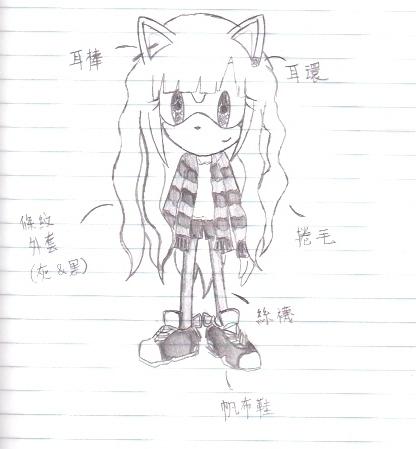 耳棒
耳環
條紋
外套
(灰&黑)
捲毛
絲襪
帆布鞋